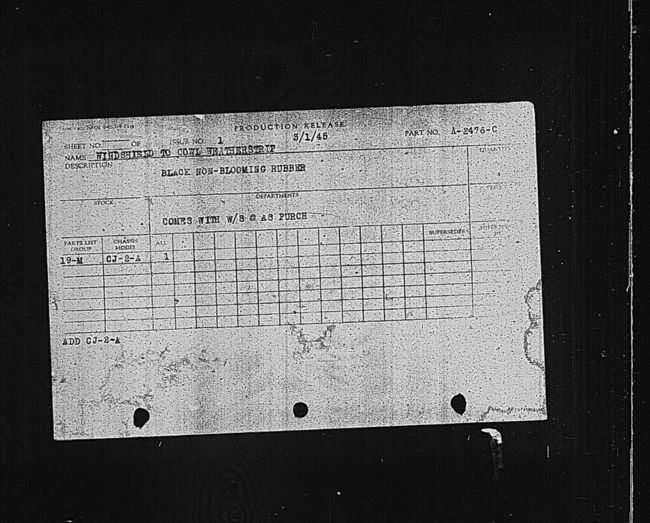 PRODUCTION RELEASE
SHEET NO. OF ISSUE NO. 1 3/1/45 PART NO. A-2476-C
NAME WINDSHIELD TO COWL WEATHERSTRIP
DESCRIPTION QUANTITY
BLACK NON-BLOOMING RUBBER
STOCK DEPARTMENTS
COMES WITH W/S G AS PURCH
PARTS LIST GROUP CHASSIS MODEL ALL SUPERSEDES
19-M CJ-2-A 1
ADD CJ-2-A